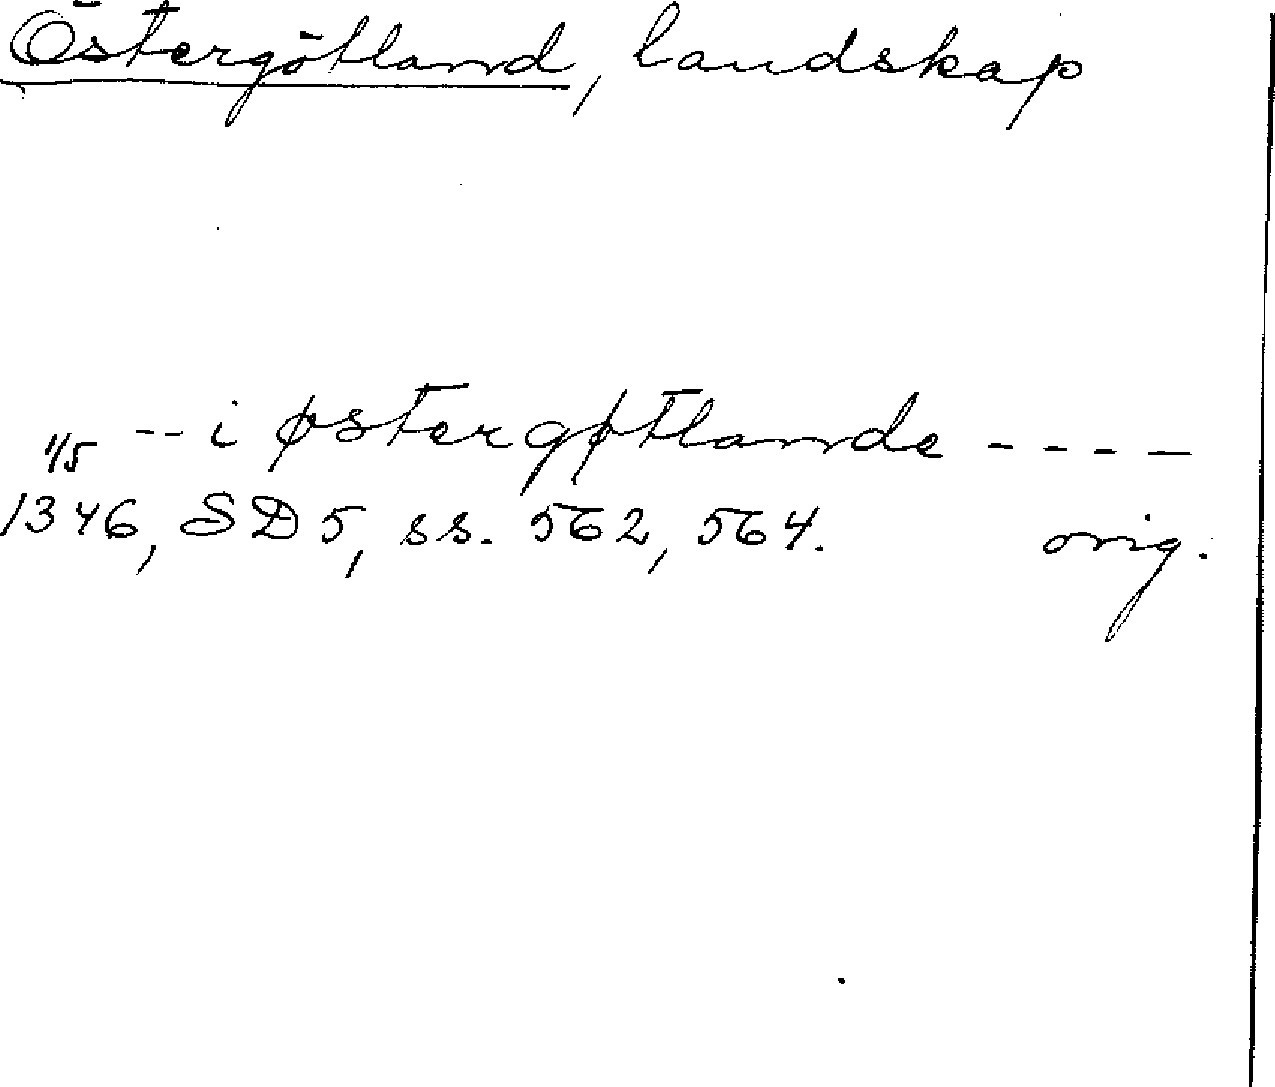 Östergötland, landskap
-- i østergøtlande ----
1/5
1346, SD 5, ss. 562, 564. orig.